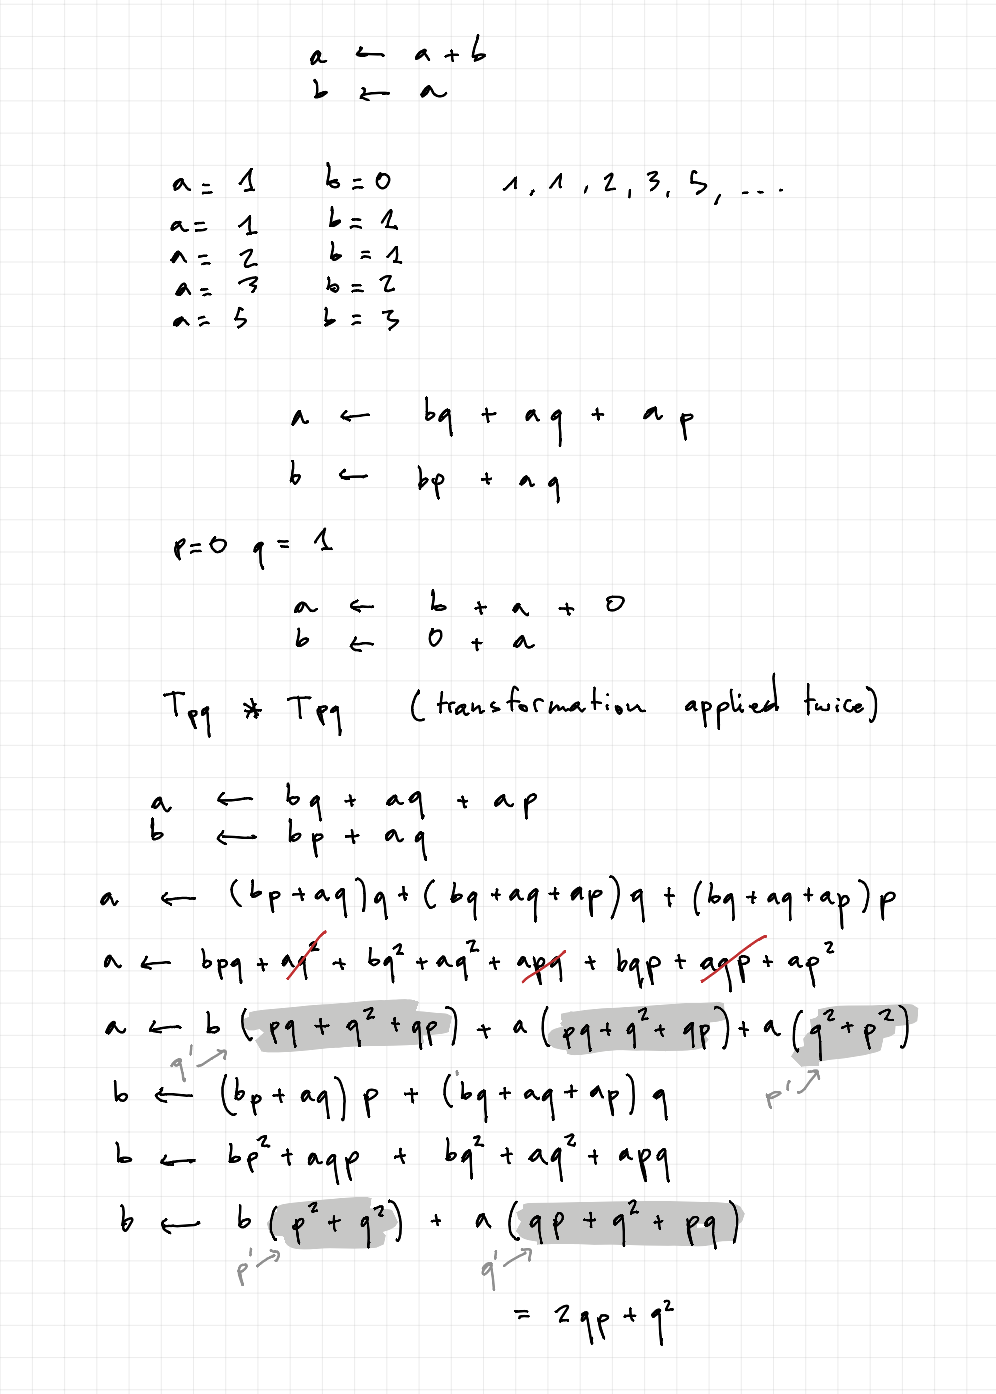 a ← a + b
b ← a
a = 1 b = 0 1, 1, 2, 3, 5, ...
a = 1 b = 1
a = 2 b = 1
a = 3 b = 2
a = 5 b = 3
a ← bq + aq + ap
b ← bp + aq
p=0 q = 1
a ← b + a + 0
b ← 0 + a
Tpq * Tpq (transformation applied twice)
a ← bq + aq + ap
b ← bp + aq
a ← (bp + aq)q + (bq + aq + ap)q + (bq + aq + ap)p
a ← bpq + aq² + bq² + aq² + apq + bqp + aqp + ap²
a ← b (pq + q² + qp) + a (pq + q² + qp) + a (q² + p²)
q' p'
b ← (bp + aq) p + (bq + aq + ap) q
b ← bp² + aqp + bq² + aq² + apq
b ← b (p² + q²) + a (qp + q² + pq)
p' q'
= 2qp + q²